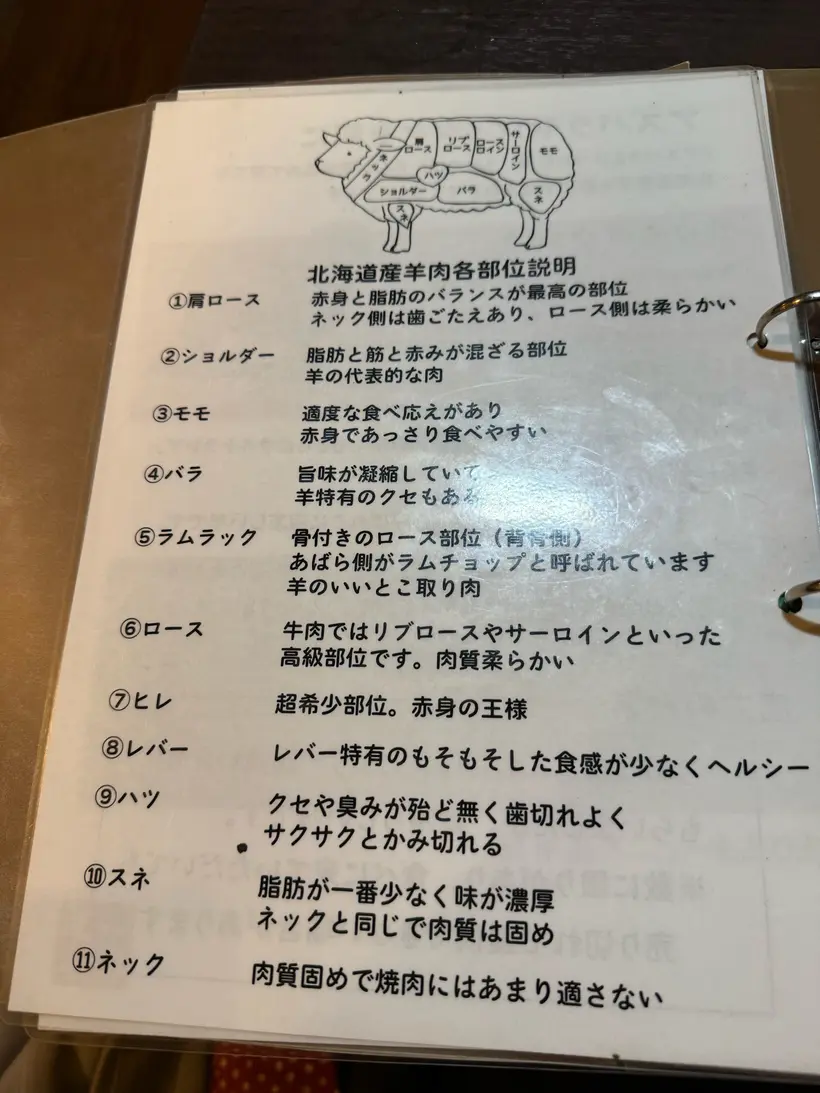 肩
ロース
リブ
ロース
ロース
ロイン
サーロイン
モモ
ネック
ラ
ハツ
ショルダー
バラ
スネ
スネ
北海道産羊肉各部位説明
①肩ロース 赤身と脂肪のバランスが最高の部位
ネック側は歯ごたえあり、ロース側は柔らかい
②ショルダー 脂肪と筋と赤みが混ざる部位
羊の代表的な肉
③モモ 適度な食べ応えがあり
赤身であっさり食べやすい
④バラ 旨味が凝縮していて
羊特有のクセもある
⑤ラムラック 骨付きのロース部位（背骨側）
あばら側がラムチョップと呼ばれています
羊のいいとこ取り肉
⑥ロース 牛肉ではリブロースやサーロインといった
高級部位です。肉質柔らかい
⑦ヒレ 超希少部位。赤身の王様
⑧レバー レバー特有のもそもそした食感が少なくヘルシー
⑨ハツ クセや臭みが殆ど無く歯切れよく
サクサクとかみ切れる
⑩スネ 脂肪が一番少なく味が濃厚
ネックと同じで肉質は固め
⑪ネック 肉質固めで焼肉にはあまり適さない